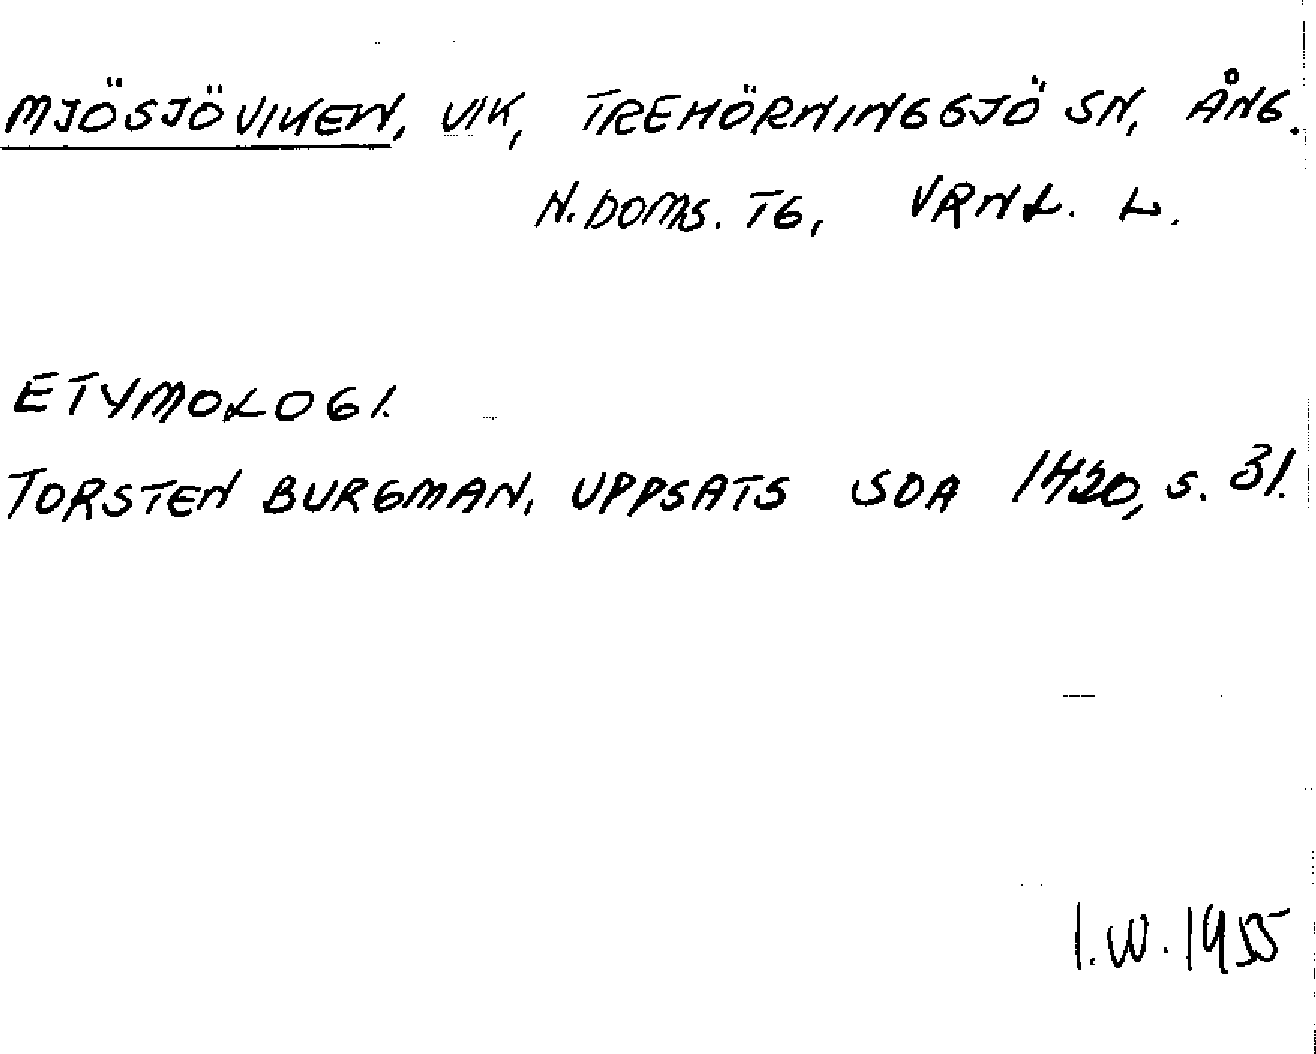 MJÖSJÖVIKEN, VIK, TREHÖRNINGSJÖ SN, ÅNG.
N. DOMS. TG, VRNL. L.
ETYMOLOGI.
TORSTEN BURGMAN, UPPSATS SOA 1420, S. 31.
I.W. 1955